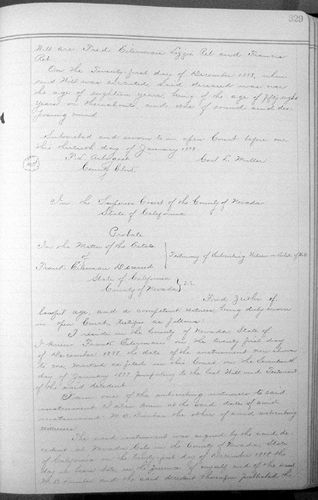 329
Will are Fred Eilerman Lizzie Pet and Francis
Pet.
On the Twenty first day of December 1898, when
said Will was executed said deceased was over
the age of eighteen years, being of the age of fifty eight
years or thereabouts, and was of sound and dis-
posing mind.
Subscribed and sworn to in open Court before me
this day of January 1899.
County Clerk.
In the Superior Court of the County of Nevada
State of California
Probate
In the Matter of the Estate
of
Frank Deceased
Testimony of Subscribing Witness on Probate of Will
State of California
County of Nevada } S.S.
Fred of
lawful age, and a competent witness, being duly sworn
in open Court, testifies as follows:
I reside in the County of Nevada State of
I knew Frank on the twenty first day
of December 1898 the date of the instrument now shown
to me, marked as filed in this Court on the
day of January 1899, purporting to be the last Will and Testament
of the said decedent.
I am one of the subscribing witnesses to said
instrument I also knew at the said date of said
instrument the other of said subscribing
witnesses
The said instrument was signed by the said de-
cedent at Nevada City in the County of Nevada State
of California on the twenty first day of December 1898 the
day it bears date, in the presence of myself and of the said
and the said decedent thereupon published the